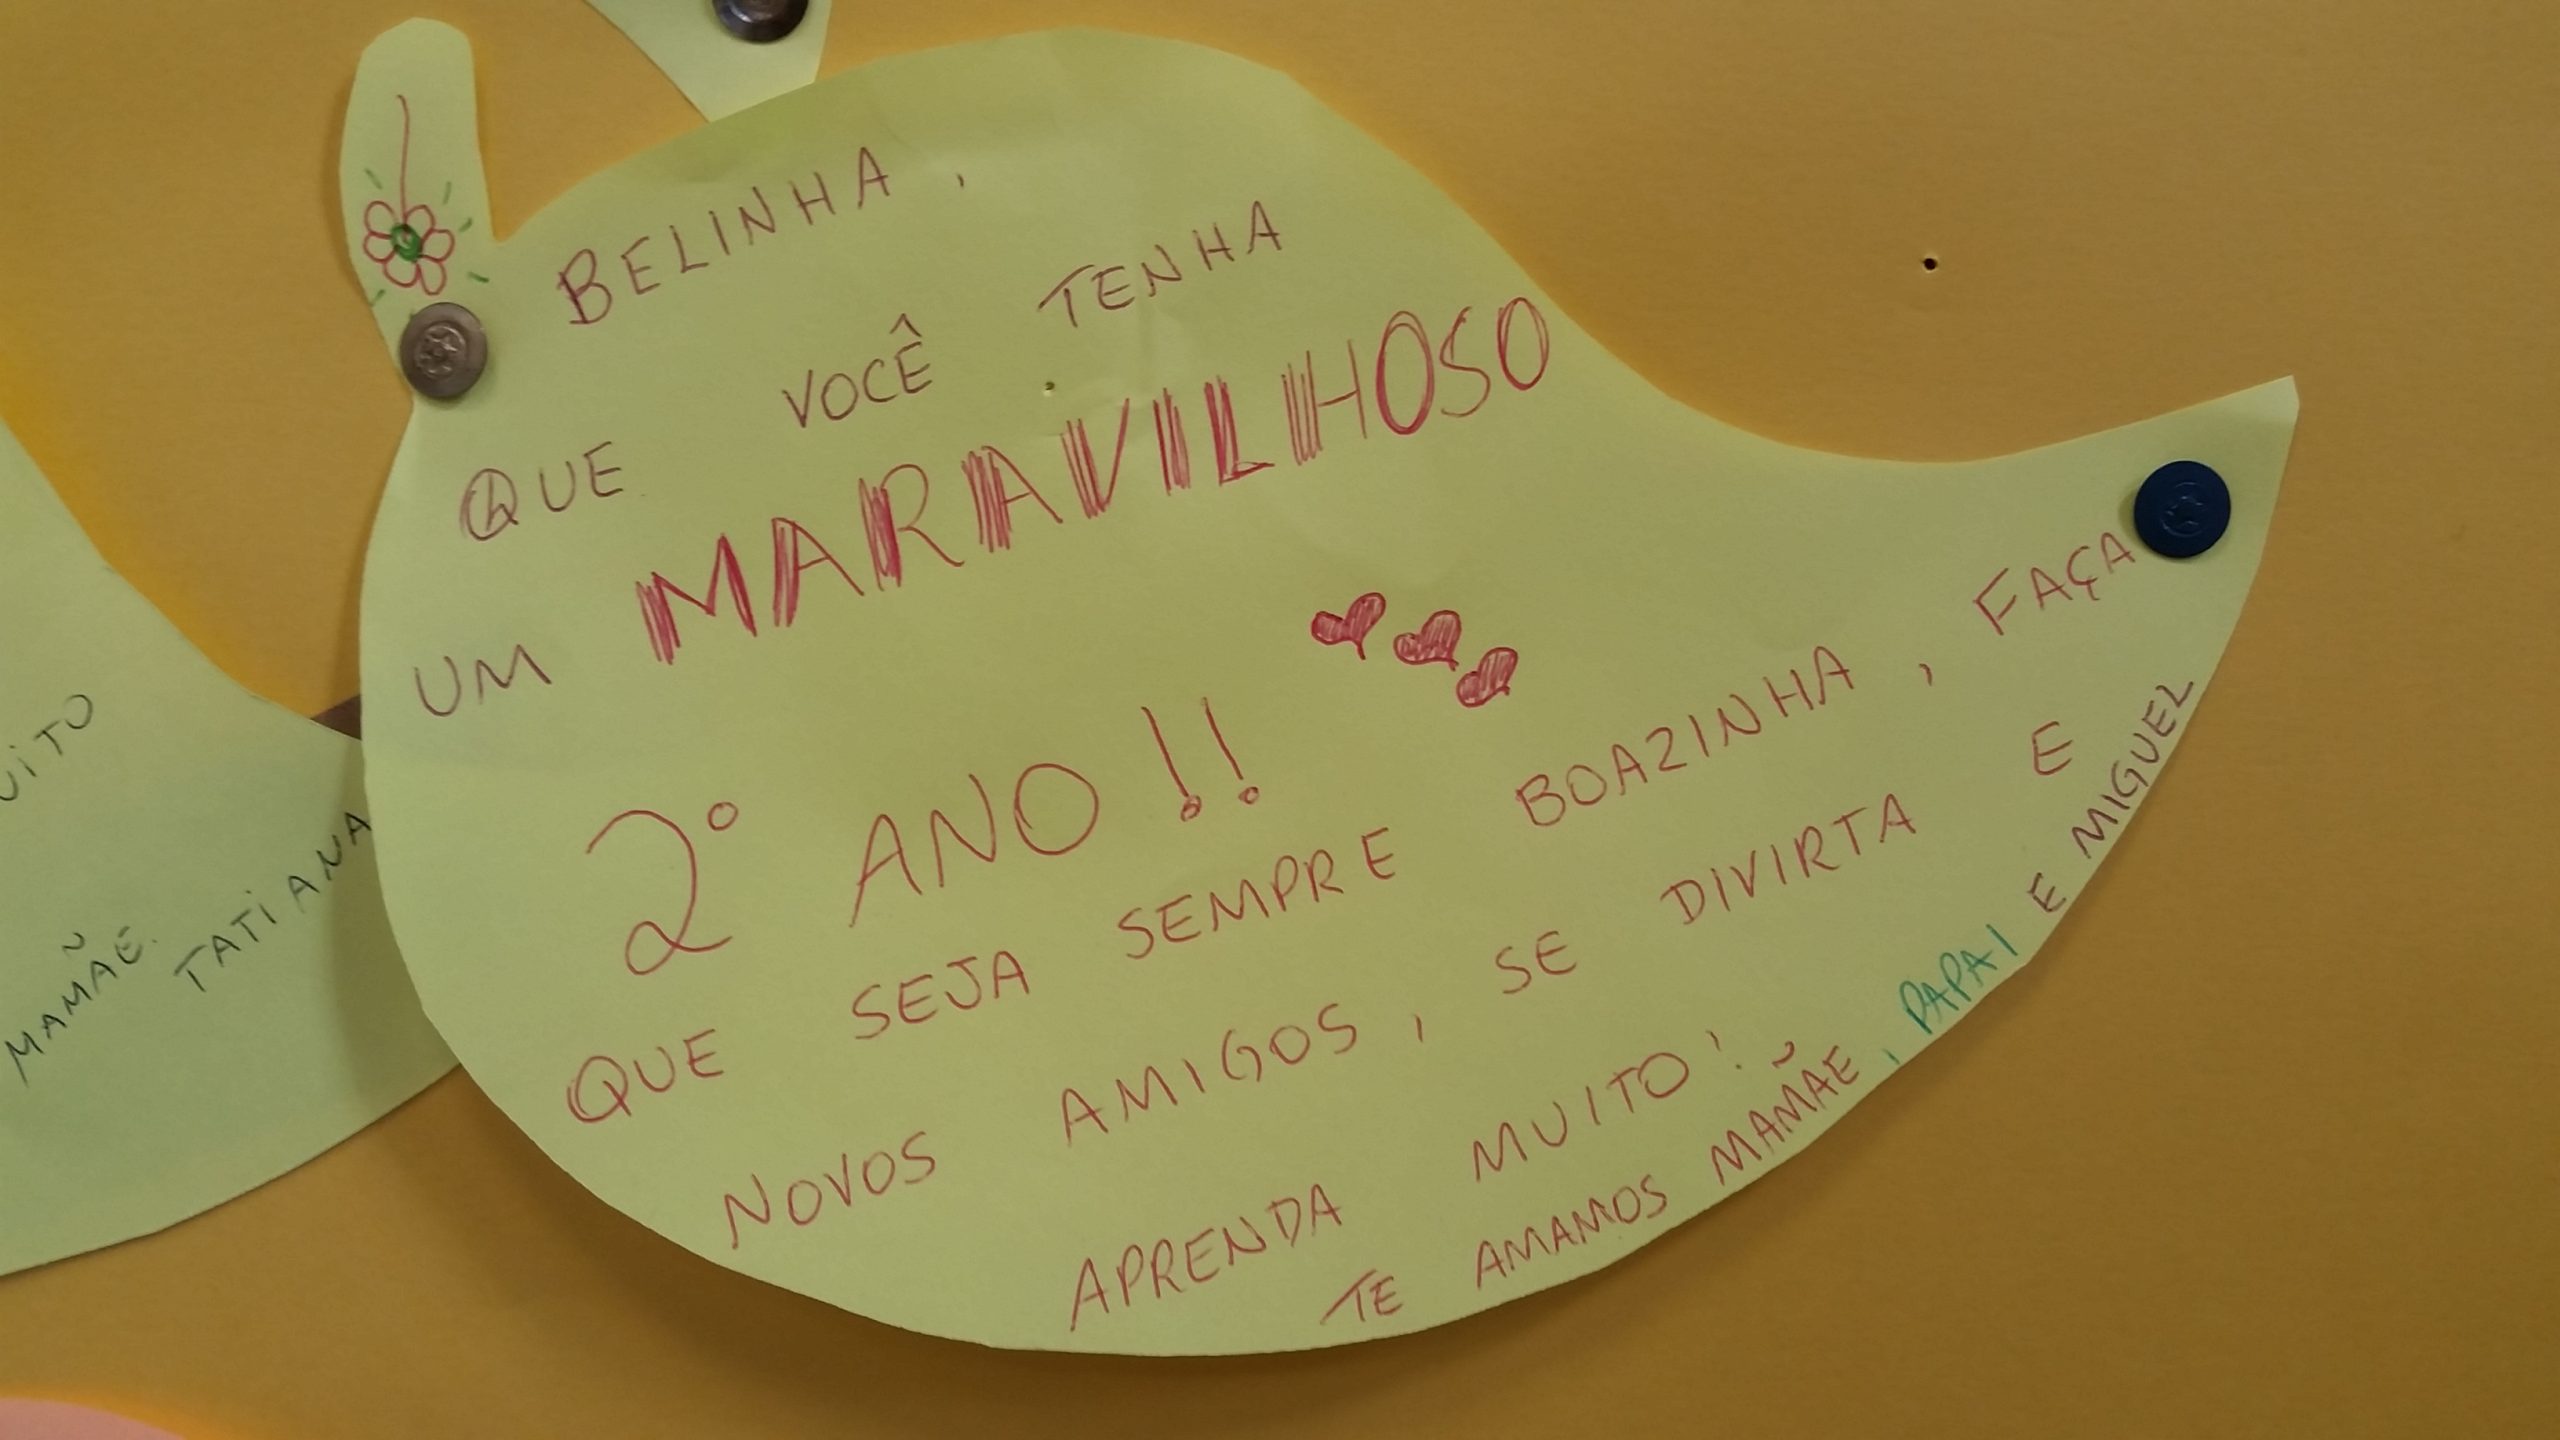 BELINHA,
QUE VOCÊ TENHA
UM MARAVILHOSO
2º ANO!!
QUE SEJA SEMPRE BOAZINHA, FAÇA
NOVOS AMIGOS, SE DIVIRTA E
APRENDA MUITO!
TE AMAMOS MAMÃE, PAPAI E MIGUEL
MAMÃE.
TATIANA